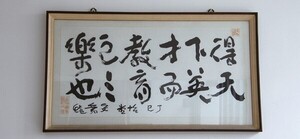 得天
下英
才而
教育
之三
樂也
丁巳